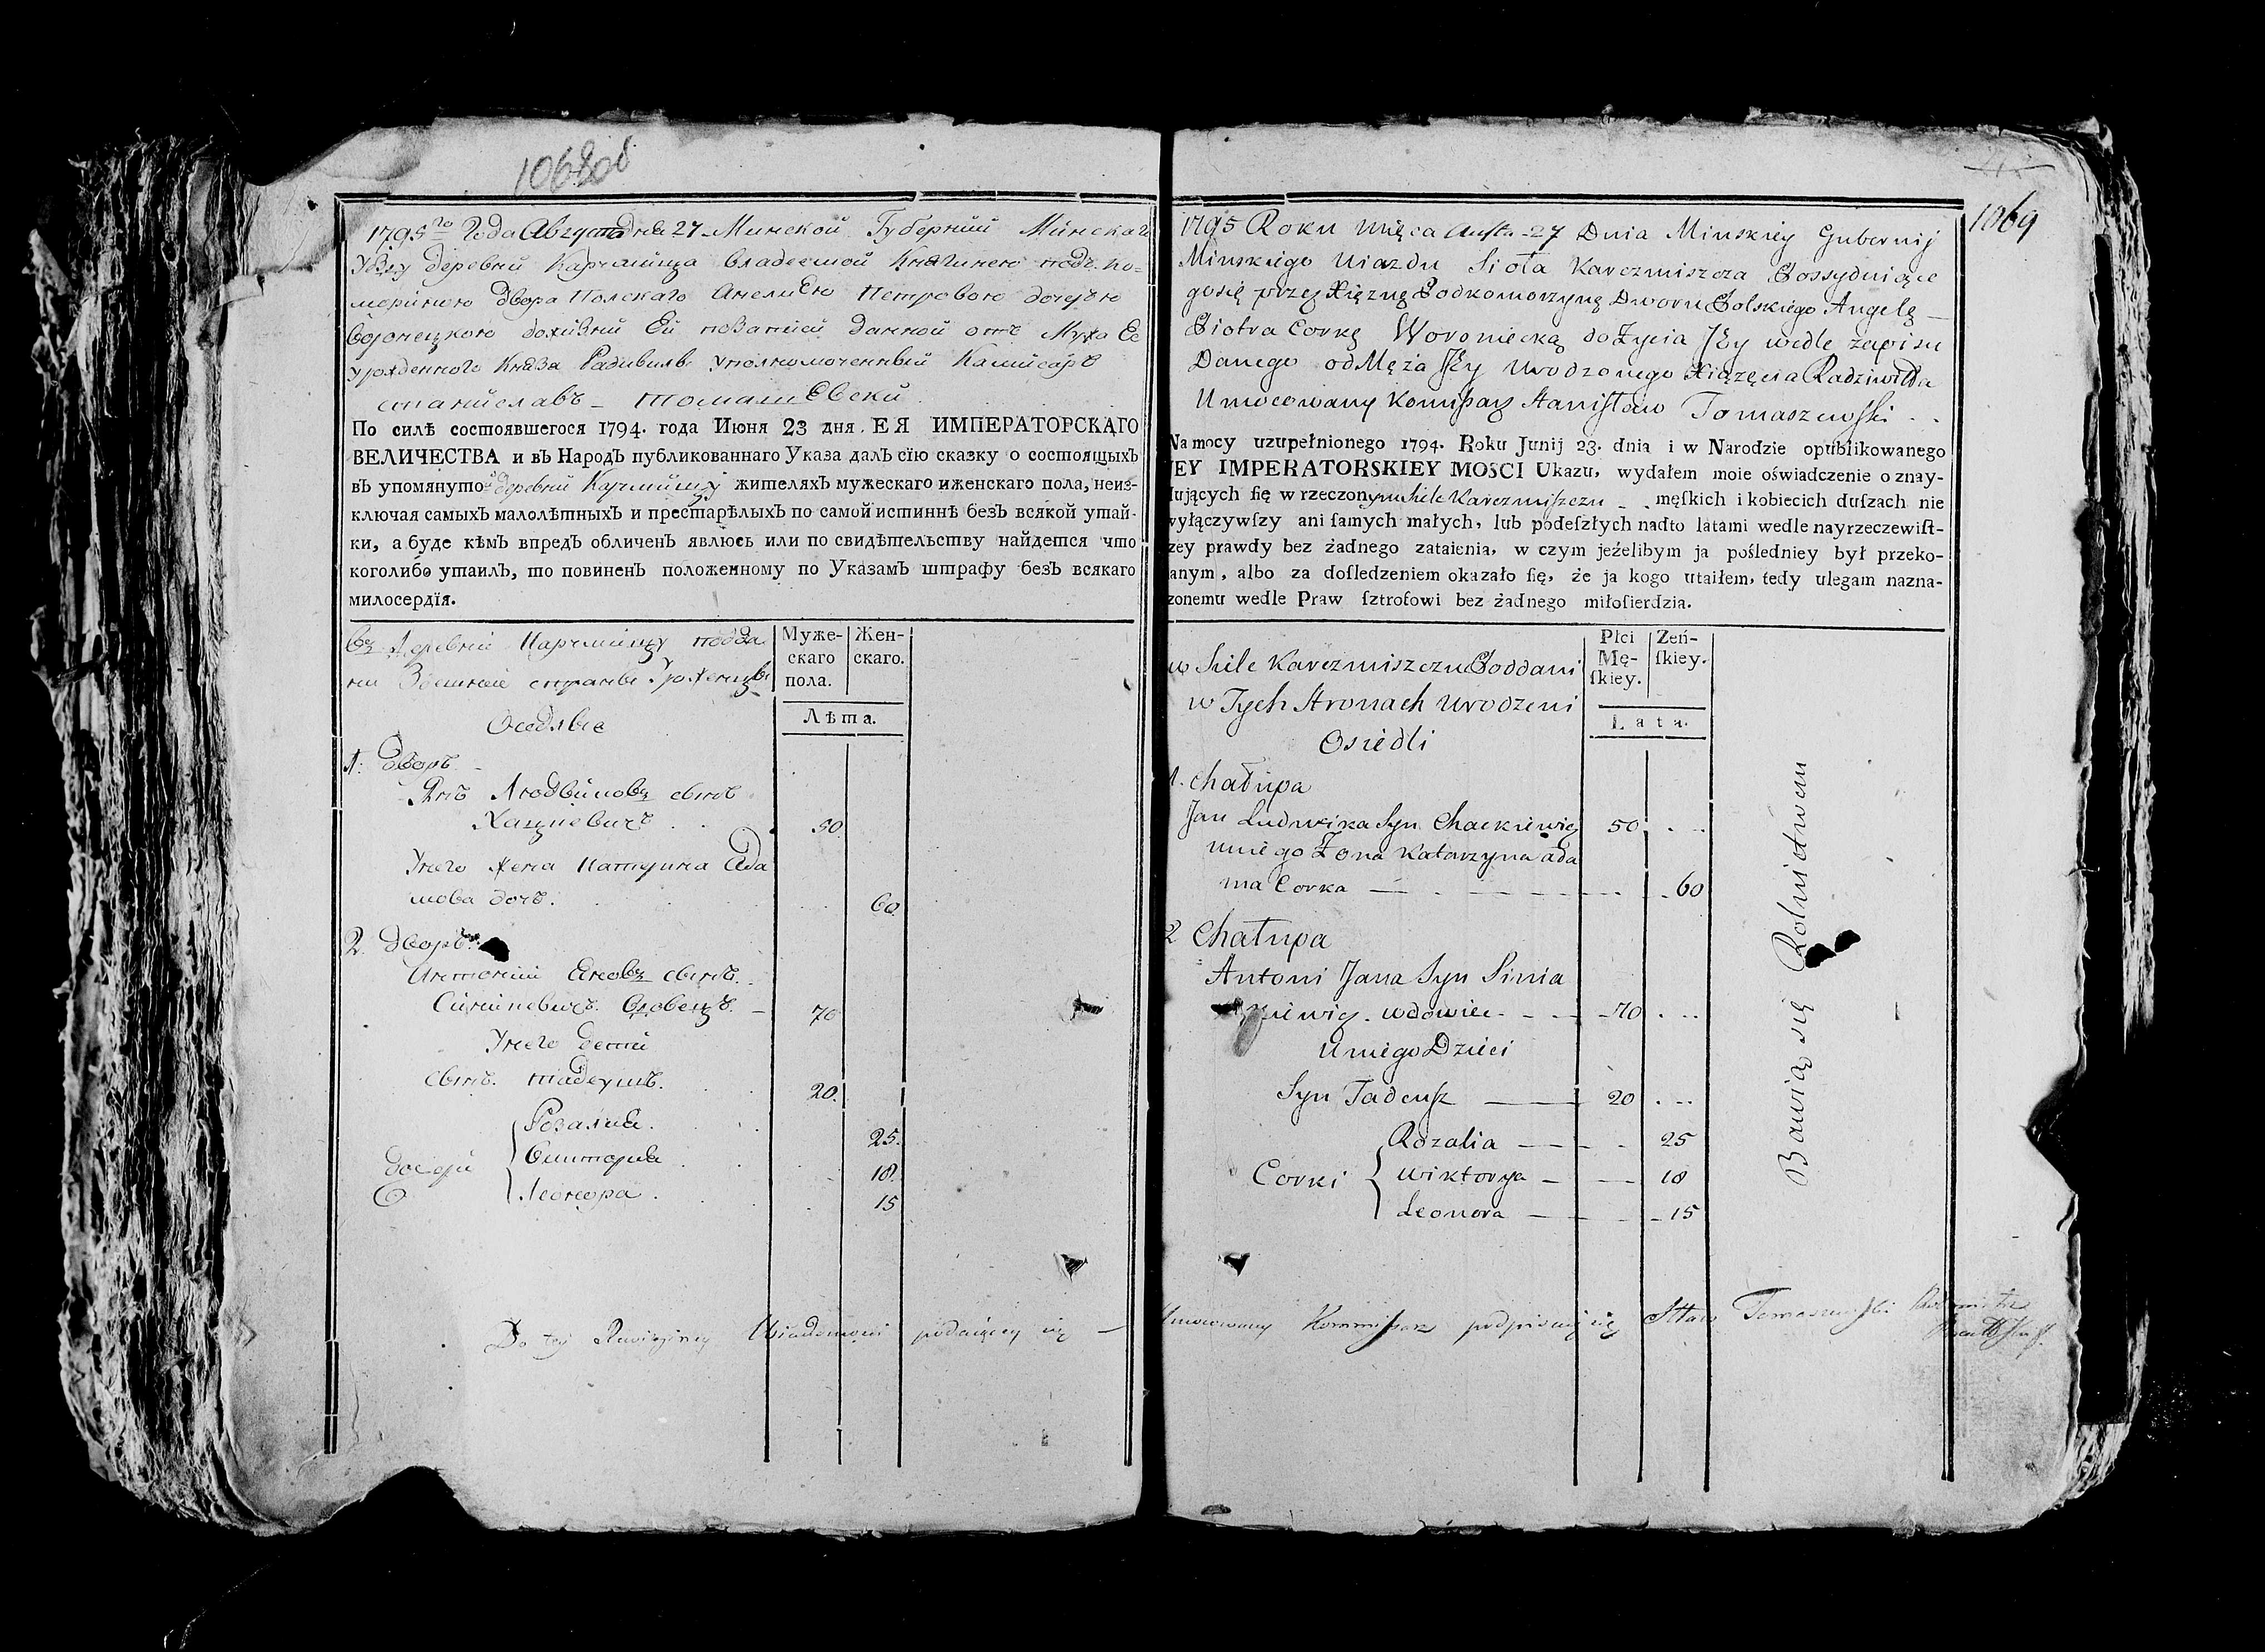 1068об
1795го Года Августа дня 27 Минской Губернии Минскаго
Уѣзду деревни Карчмища владеемой Княгинею подъ ко=
морiною двора Полскаго Анелиею Петровою дочерью
Воронецкою дожизни Ей позаписи данной отъ Мужа Ее
урожденного Князя Радивила уполномоченный Камисаръ
станиславъ - Томашевски
По силѣ состоявшегося 1794. года Июня 23 дня. ЕЯ ИМПЕРАТОРСКАГО
ВЕЛИЧЕСТВА и въ Народъ публикованнаго Указа далъ сїю сказку о состоящыхъ
въ упомянутой деревни Карчмищу жителяхъ мужескаго иженскаго пола, неиз-
ключая самыхъ малолѣтныхъ и престарѣлыхъ по самой истиннѣ безъ всякой утай-
ки, а буде кѣмъ впредъ обличенъ явлюсь или по свидѣтельству найдется что
коголибо утаилъ, то повиненъ положенному по Указамъ штрафу безъ всякаго
милосердїя.
въ Деревни Карчмищу подда
ни Здешние страны Уроженцы
Оседлые
Муже-
скаго
пола.
Жен-
скаго.
Лѣта.
1: Дворъ
Янъ Людвиковъ сынъ
Хацкевичъ . . 50
Унего жена Катерина Ада
мова дочь. 60
2. Дворъ
Антоний Яновъ сынъ
Синпкевичъ вдовецъ. - 70
Унего дети
сынъ. тадеушъ. 20.
дочери
Розалия. 25.
Виктория 18.
Леонора . 15
Do tey Rewizyiney Wiadomosci podaiący się —
1069
1795 Roku Mięca Aufta - 27 Dnia Minskiey Gubernij
Minskiego Uiazdu Sioła Karczmiszcza Possyduiące
gosię przez Xiężnę Podkomorzynę Dworu Polskiego Angelę —
Piotra Corkę Woroniecką do Życia Jey wedle zapisu
Danego od Męża Jey Urodzonego Xiązęcia Radziwiłła
Umocowany Komiſarz Staniſław Tomaszewſki . .
Na mocy uzupełnionego 1794. Roku Junij 23. dnia i w Narodzie opublikowanego
JEY IMPERATORSKIEY MOSCI Ukazu, wydałem moie oświadczenie o znay-
dujących ſię w rzeczonym Siele Karczmiſzczu - . męſkich i kobiecich duſzach nie
wyłączywſzy ani ſamych małych, lub podeſzłych nadto latami wedle nayrzeczewiſt-
szey prawdy bez żadnego zataienia, w czym jeżelibym ja pośledniey był przeko-
nanym, albo za doſledzeniem okazało ſię, że ja kogo utaiłem, tedy ulegam nazna-
czonemu wedle Praw ſztrofowi bez żadnego miłoſierdzia.
w Siele Karczmiszczu Poddani
w Tych Stronach Urodzeni
Osiedli
Płci
Mę-
ſkiey.
Zeń-
ſkiey.
Lata.
1. Chałupa
Jan Ludwika Syn Chackiewicz 50 . ..
u niego Żona Katarzyna Ada
ma Corka — . 60
2 Chałupa
Antoni Jana Syn Sinia
kiewicz. wdowiec - - - 70 . ..
U niego Dzieci
Syn Tadeuſz — 20 . ..
Corki
Rozalia — - 25
Wiktorya - — 18
Leonora — - 15
Bawią się Rolnictwem
Umocowany Kommiſsarz podpisuię się Stan Tomaszewſki